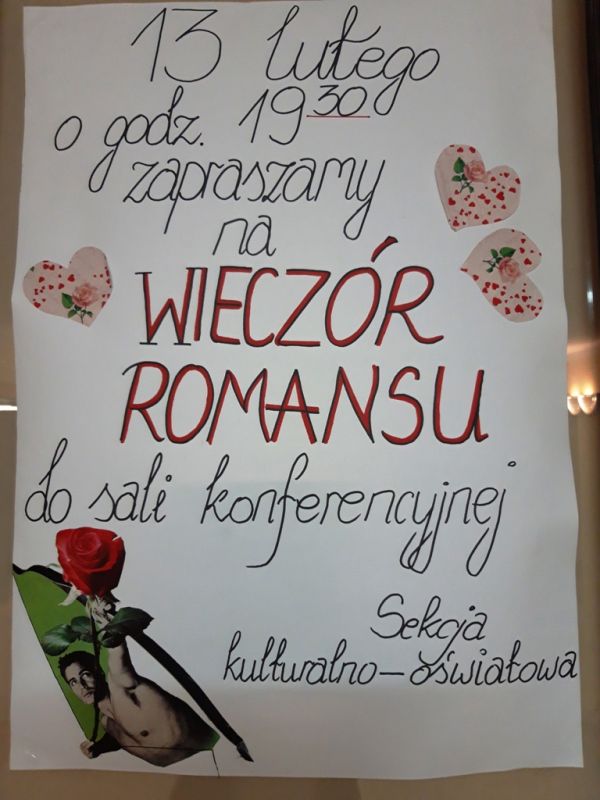 13 lutego
o godz. 19 30
zapraszamy
na
WIECZÓR
ROMANSU
do sali konferencyjnej
Sekcja
kulturalno-oświatowa